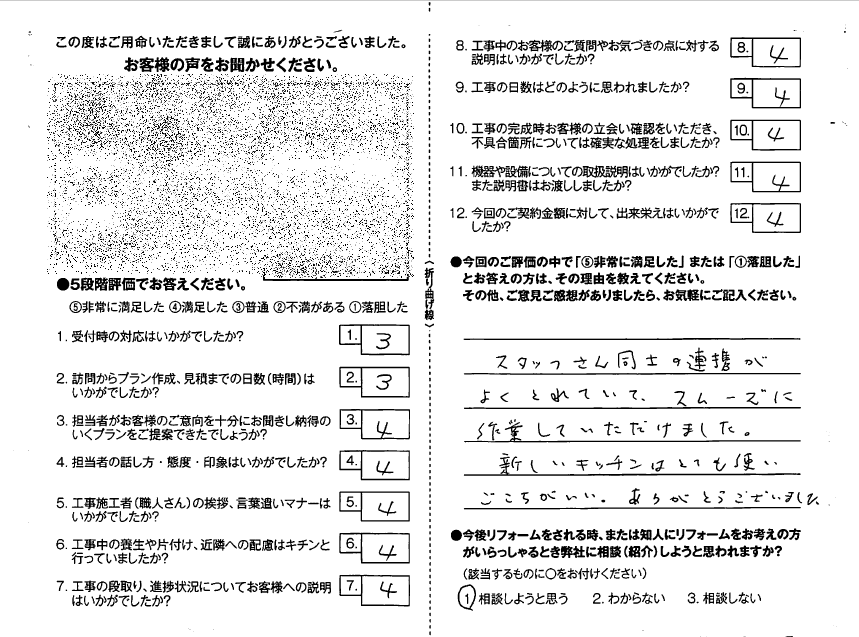 この度はご用命いただきまして誠にありがとうございました。
お客様の声をお聞かせください。
●5段階評価でお答えください。
⑤非常に満足した ④満足した ③普通 ②不満がある ①落胆した
1. 受付時の対応はいかがでしたか? 1. 3
2. 訪問からプラン作成、見積までの日数(時間)は 2. 3
いかがでしたか?
3. 担当者がお客様のご意向を十分にお聞きし納得の 3. 4
いくプランをご提案できたでしょうか?
4. 担当者の話し方・態度・印象はいかがでしたか? 4. 4
5. 工事施工者(職人さん)の挨拶、言葉遣いマナーは 5. 4
いかがでしたか?
6. 工事中の養生や片付け、近隣への配慮はキチンと 6. 4
行っていましたか?
7. 工事の段取り、進捗状況についてお客様への説明 7. 4
はいかがでしたか?
〈折り曲げ線〉
8. 工事中のお客様のご質問やお気づきの点に対する 8. 4
説明はいかがでしたか?
9. 工事の日数はどのように思われましたか? 9. 4
10. 工事の完成時お客様の立会い確認をいただき、 10. 4
不具合箇所については確実な処理をしましたか?
11. 機器や設備についての取扱説明はいかがでしたか? 11. 4
また説明書はお渡ししましたか?
12. 今回のご契約金額に対して、出来栄えはいかがで 12. 4
したか?
●今回のご評価の中で「⑤非常に満足した」または「①落胆した」
とお答えの方は、その理由を教えてください。
その他、ご意見ご感想がありましたら、お気軽にご記入ください。
スタッフさん同士の連携が
よくとれていて、スムーズに
作業していただけました。
新しいキッチンはとても使い
ごこちがいい。ありがとうございました
●今後リフォームをされる時、または知人にリフォームをお考えの方
がいらっしゃるとき弊社に相談(紹介)しようと思われますか?
(該当するものに○をお付けください)
① 相談しようと思う 2. わからない 3. 相談しない